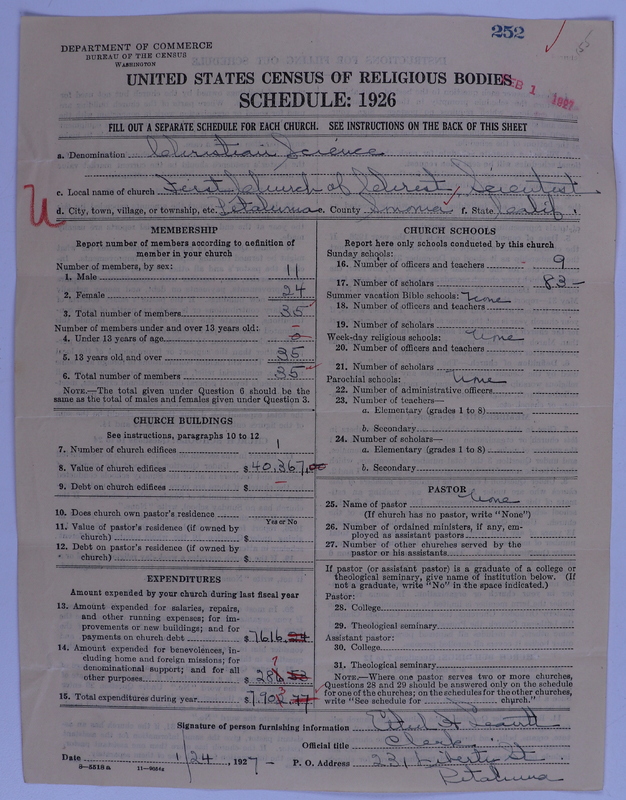 252
DEPARTMENT OF COMMERCE
BUREAU OF THE CENSUS
WASHINGTON
UNITED STATES CENSUS OF RELIGIOUS BODIES
SCHEDULE: 1926
FEB 1 1927
FILL OUT A SEPARATE SCHEDULE FOR EACH CHURCH. SEE INSTRUCTIONS ON THE BACK OF THIS SHEET
a. Denomination Christian Science
c. Local name of church First Church of Christ, Scientist
d. City, town, village, or township, etc. Petaluma e. County Sonoma f. State Calif.
MEMBERSHIP
Report number of members according to definition of
member in your church
Number of members, by sex:
1. Male 11
2. Female 24
3. Total number of members 35
Number of members under and over 13 years old:
4. Under 13 years of age 0
5. 13 years old and over 35
6. Total number of members 35
NOTE.—The total given under Question 6 should be
same as the total of males and females given under Question 3.
CHURCH BUILDINGS
See instructions, paragraphs 10 to 12
7. Number of church edifices 1
8. Value of church edifices $ 40,367.00
9. Debt on church edifices $ —
10. Does church own pastor's residence
Yes or No
11. Value of pastor's residence (if owned by
church) $
12. Debt on pastor's residence (if owned by
church) $
EXPENDITURES
Amount expended by your church during last fiscal year
13. Amount expended for salaries, repairs,
and other running expenses; for im-
provements or new buildings; and for
payments on church debt $ 7616.
14. Amount expended for benevolences, in-
cluding home and foreign missions; for
denominational support; and for all
other purposes $
15. Total expenditures during year $
CHURCH SCHOOLS
Report here only schools conducted by this church
Sunday schools:
16. Number of officers and teachers 9
17. Number of scholars 83 —
Summer vacation Bible schools: None
18. Number of officers and teachers
19. Number of scholars
Week-day religious schools: None
20. Number of officers and teachers
21. Number of scholars
Parochial schools: None
22. Number of administrative officers
23. Number of teachers—
a. Elementary (grades 1 to 8)
b. Secondary
24. Number of scholars—
a. Elementary (grades 1 to 8)
b. Secondary
PASTOR
25. Name of pastor None
(If church has no pastor, write "None")
26. Number of ordained ministers, if any, em-
ployed as assistant pastors
27. Number of other churches served by the
pastor or his assistants
If pastor (or assistant pastor) is a graduate of a college or
theological seminary, give name of institution below. (If
not a graduate, write "No" in the space indicated.)
Pastor:
28. College
29. Theological seminary
Assistant pastor:
30. College
31. Theological seminary
NOTE.—Where one pastor serves two or more churches,
Questions 28 and 29 should be answered only on the schedule
for one of the churches; on the schedules for the other churches,
write "See schedule for church."
Signature of person furnishing information
Official title Clerk
Date 1/24, 1927 — P. O. Address 221 Liberty St.
Petaluma
8—5518a 11—9664a